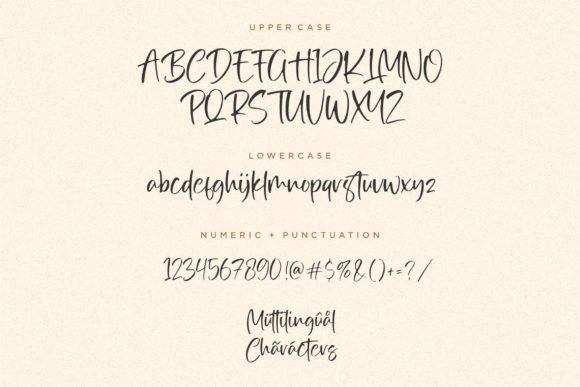 UPPER CASE
ABCDEFGHIJKLMNO
PQRSTUVWXYZ
LOWERCASE
abcdefghijklmnopqrstuvwxyz
NUMERIC + PUNCTUATION
1234567890!@#$%&()+=?/
Müttilingûål
Chãrácters